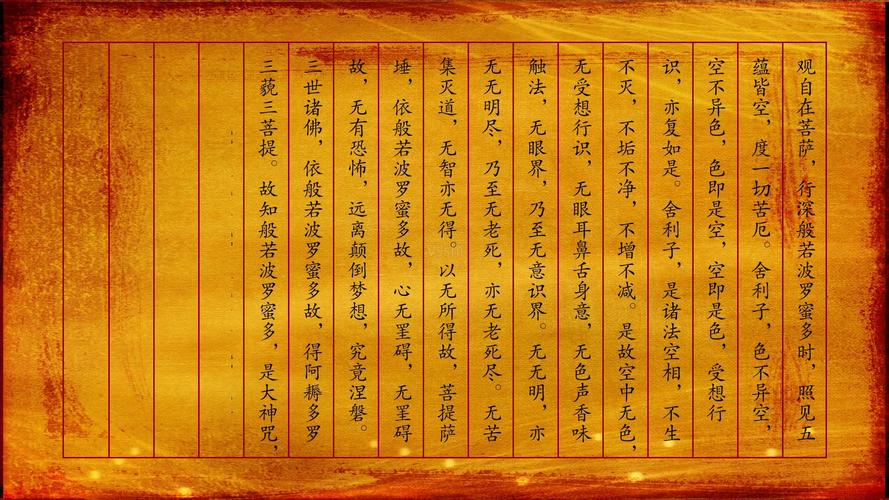 观自在菩萨，行深般若波罗蜜多时，照见五
蕴皆空，度一切苦厄。舍利子，色不异空，
空不异色，色即是空，空即是色，受想行
识，亦复如是。舍利子，是诸法空相，不生
不灭，不垢不净，不增不减。是故空中无色，
无受想行识，无眼耳鼻舌身意，无色声香味
触法，无眼界，乃至无意识界。无无明，亦
无无明尽，乃至无老死，亦无老死尽。无苦
集灭道，无智亦无得。以无所得故，菩提萨
埵，依般若波罗蜜多故，心无罣碍，无罣碍
故，无有恐怖，远离颠倒梦想，究竟涅磐。
三世诸佛，依般若波罗蜜多故，得阿耨多罗
三藐三菩提。故知般若波罗蜜多，是大神咒，